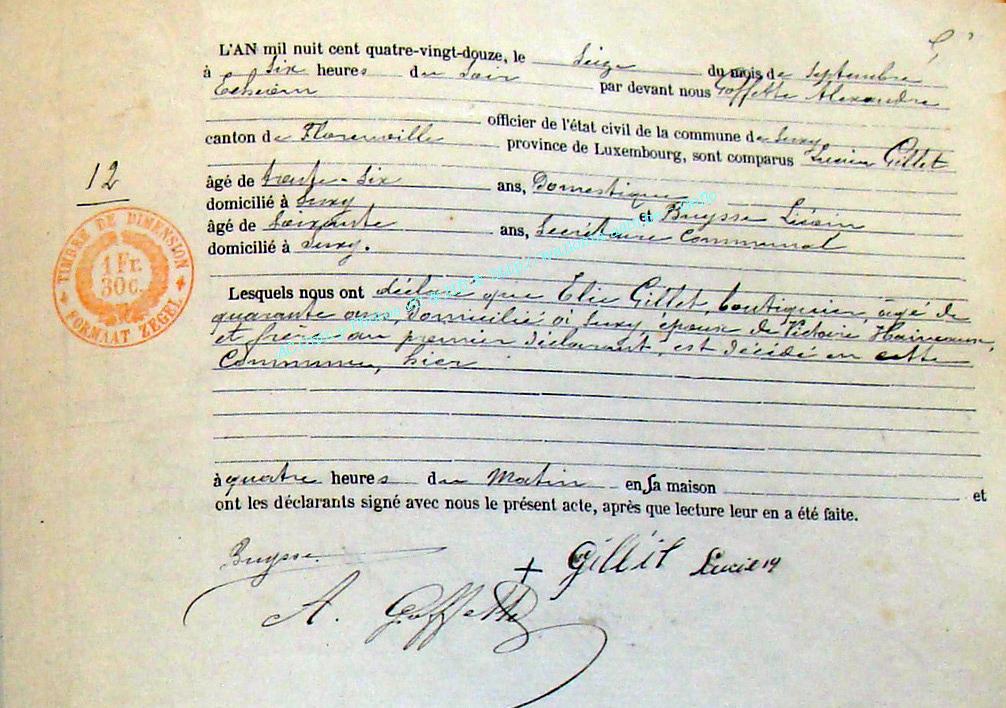 L'AN mil huit cent quatre-vingt-douze, le Seize du mois de Septembre
à Six heures du Soir par devant nous Goffette Alexandre
Echevin
officier de l'état civil de la commune de Suxy
canton de Florenville province de Luxembourg, sont comparus Lucien Gillet
12
âgé de trente-Six ans, Domestique
domicilié à Suxy et Buysse Liévin
âgé de Soixante ans, Secrétaire Communal
domicilié à Suxy.
TIMBRE DE DIMENSION
1 Fr.
30c.
FORMAAT ZEGEL
Lesquels nous ont déclaré que Elie Gillet, boutiquier, agé de
quarante ans, Domicilié à Suxy, époux de Victoire
et frère au premier déclarant, est décédé en cette
Commune, hier
à quatre heures du Matin en sa maison et
ont les déclarants signé avec nous le présent acte, après que lecture leur en a été faite.
Buysse
+ Gillit Lucien
A. Goffette